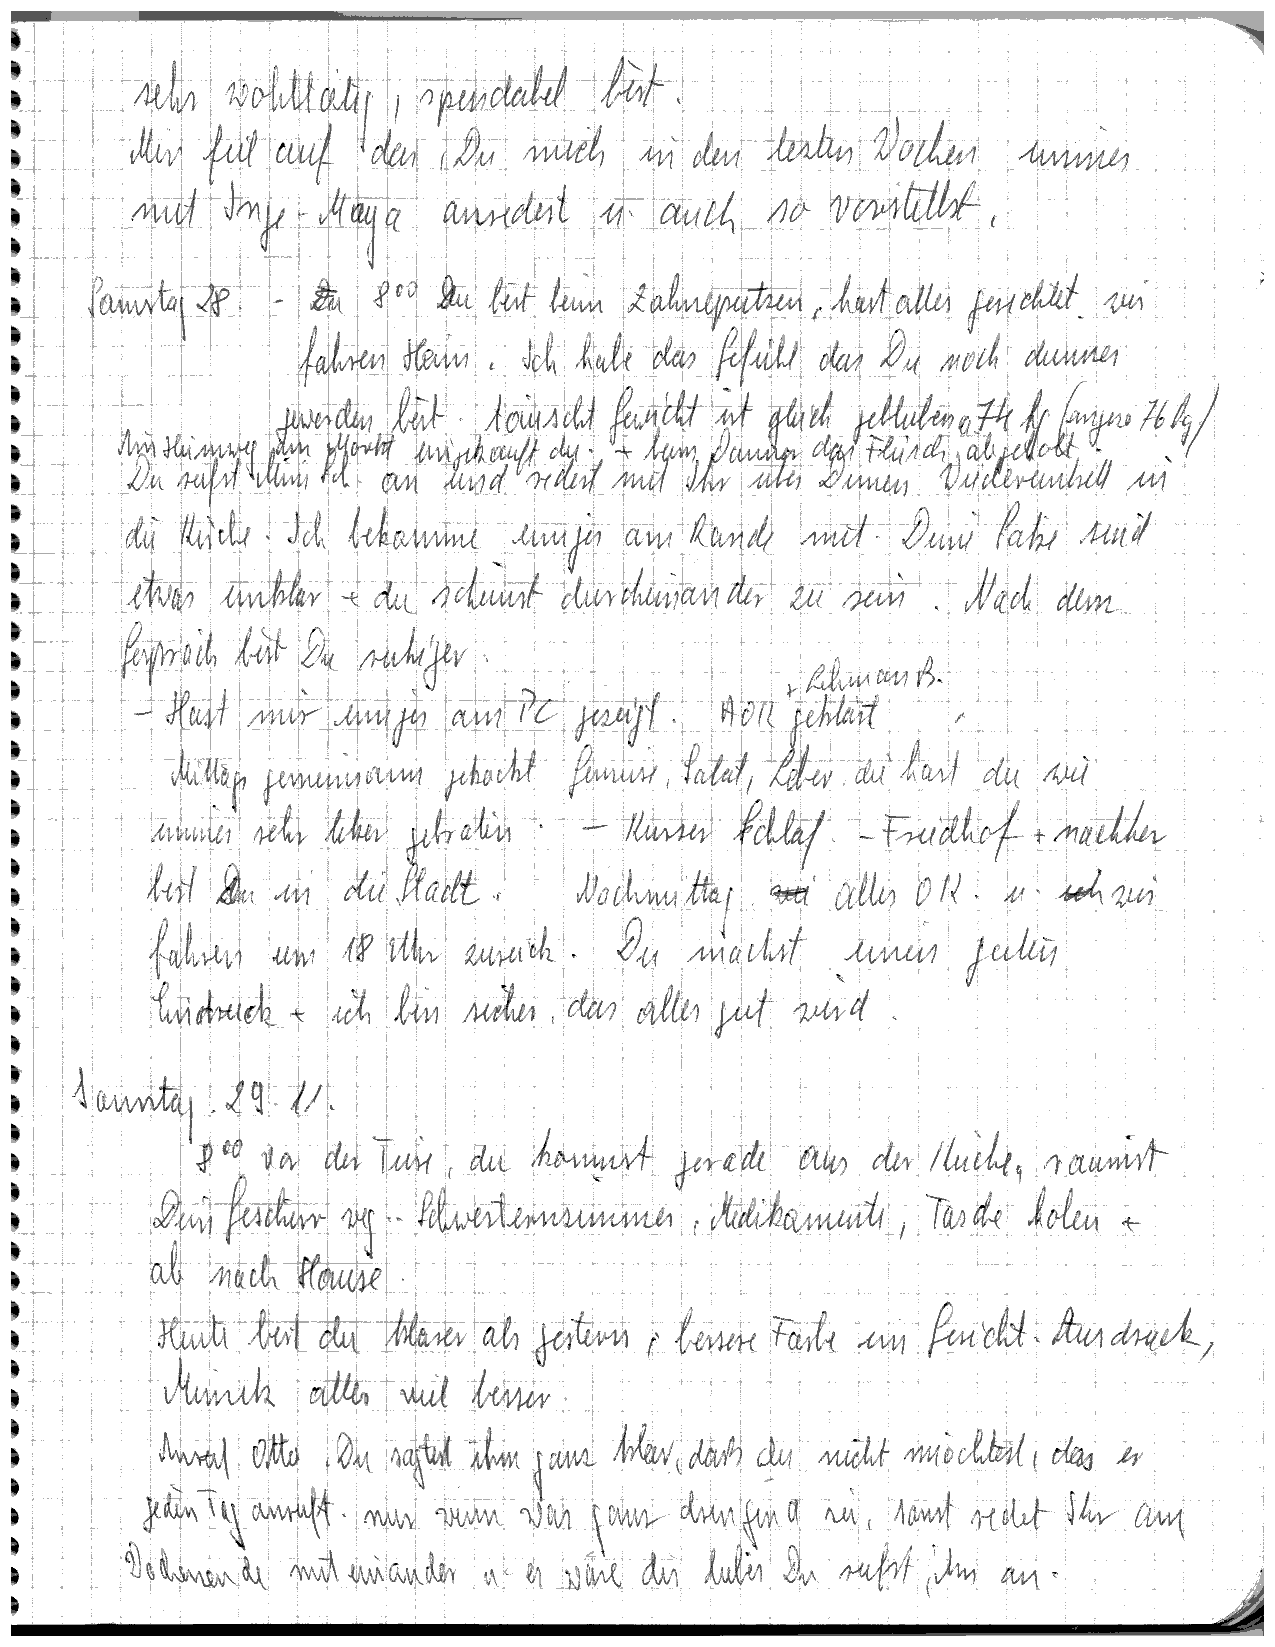 sehr wohltätig, spendabel bist.
Mir fiel auf das, Du mich in den lezten Wochen immer
mit Inge-Maya anredest u. auch so vorstellst.
Samstag 28. - 8⁰⁰ Du bist beim Zähneputzen, hast alles gerichtet. wir
fahren Heim. Ich habe das Gefühl das Du noch dünner
geworden bist. täuscht Gewicht ist gleich geblieben 74 kg ( 76 kg)
Heimweg Markt eingekauft + beim das Fleisch abgeholt.
Du rufst an und redest mit Ihr über Deinen Wiedereintritt in
die Kirche. Ich bekomme einiges am Rande mit. Deine Sätze sind
etwas unklar + du scheinst durcheinander zu sein. Nach dem
Gespräch bist Du ruhiger.
+ Lehmann B.
- Hast mir einiges am PC gezeigt. AOK geklärt
Mittags gemeinsam gekocht Gemüse, Salat, Leber die hast du wie
immer sehr leker gebraten. - Kurzer Schlaf - Friedhof + nachher
bist Du in die Stadt. Nachmittag alles OK. u. wir
fahren um 18 Uhr zurück. Du machst einen guten
Eindruck + ich bin sicher, das alles gut wird.
Sonntag. 29. 11.
8⁰⁰ vor der Türe, du kommst gerade aus der Küche, räumst
Dein Geschirr weg.. Schwesternzimmer, Medikamente, Tasche holen +
ab nach Hause.
Heute bist du klarer als gestern, bessere Farbe im Gesicht. Ausdruck,
Mimik alles viel besser.
Anruf Otto. Du sagtest ihm ganz klar, dass du nicht möchtest, das er
jeden Tag anruft. nur wenn was ganz dringend sei, sonst redet Ihr am
Wochenende miteinander u. es wäre dir lieber Du rufst ihn an.